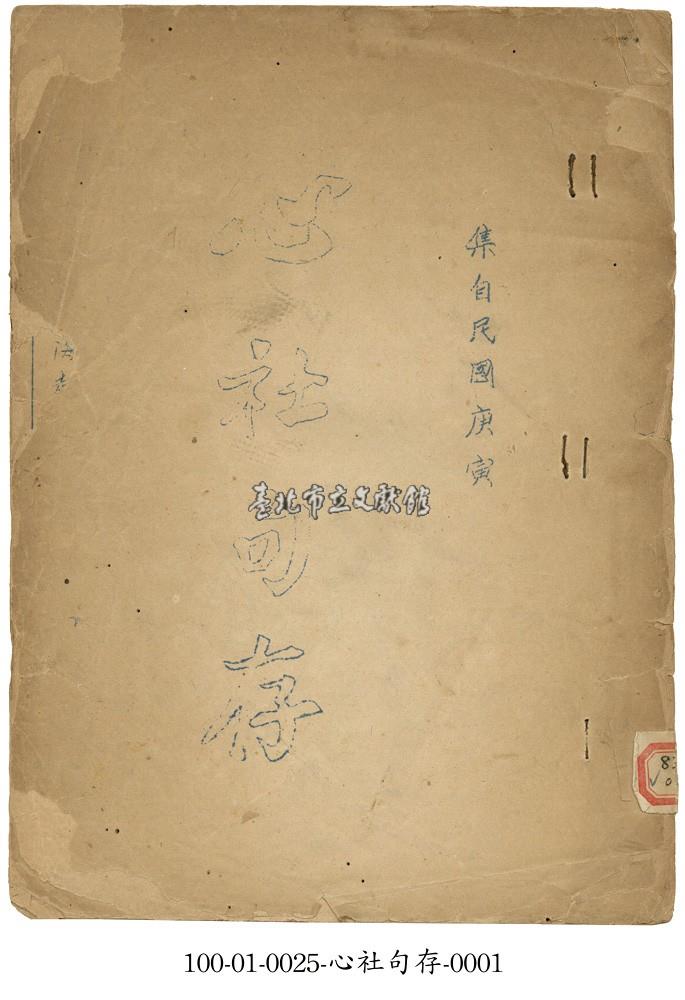 集自民國庚寅
心社句存
臺北市立文獻館
100-01-0025-心社句存-0001